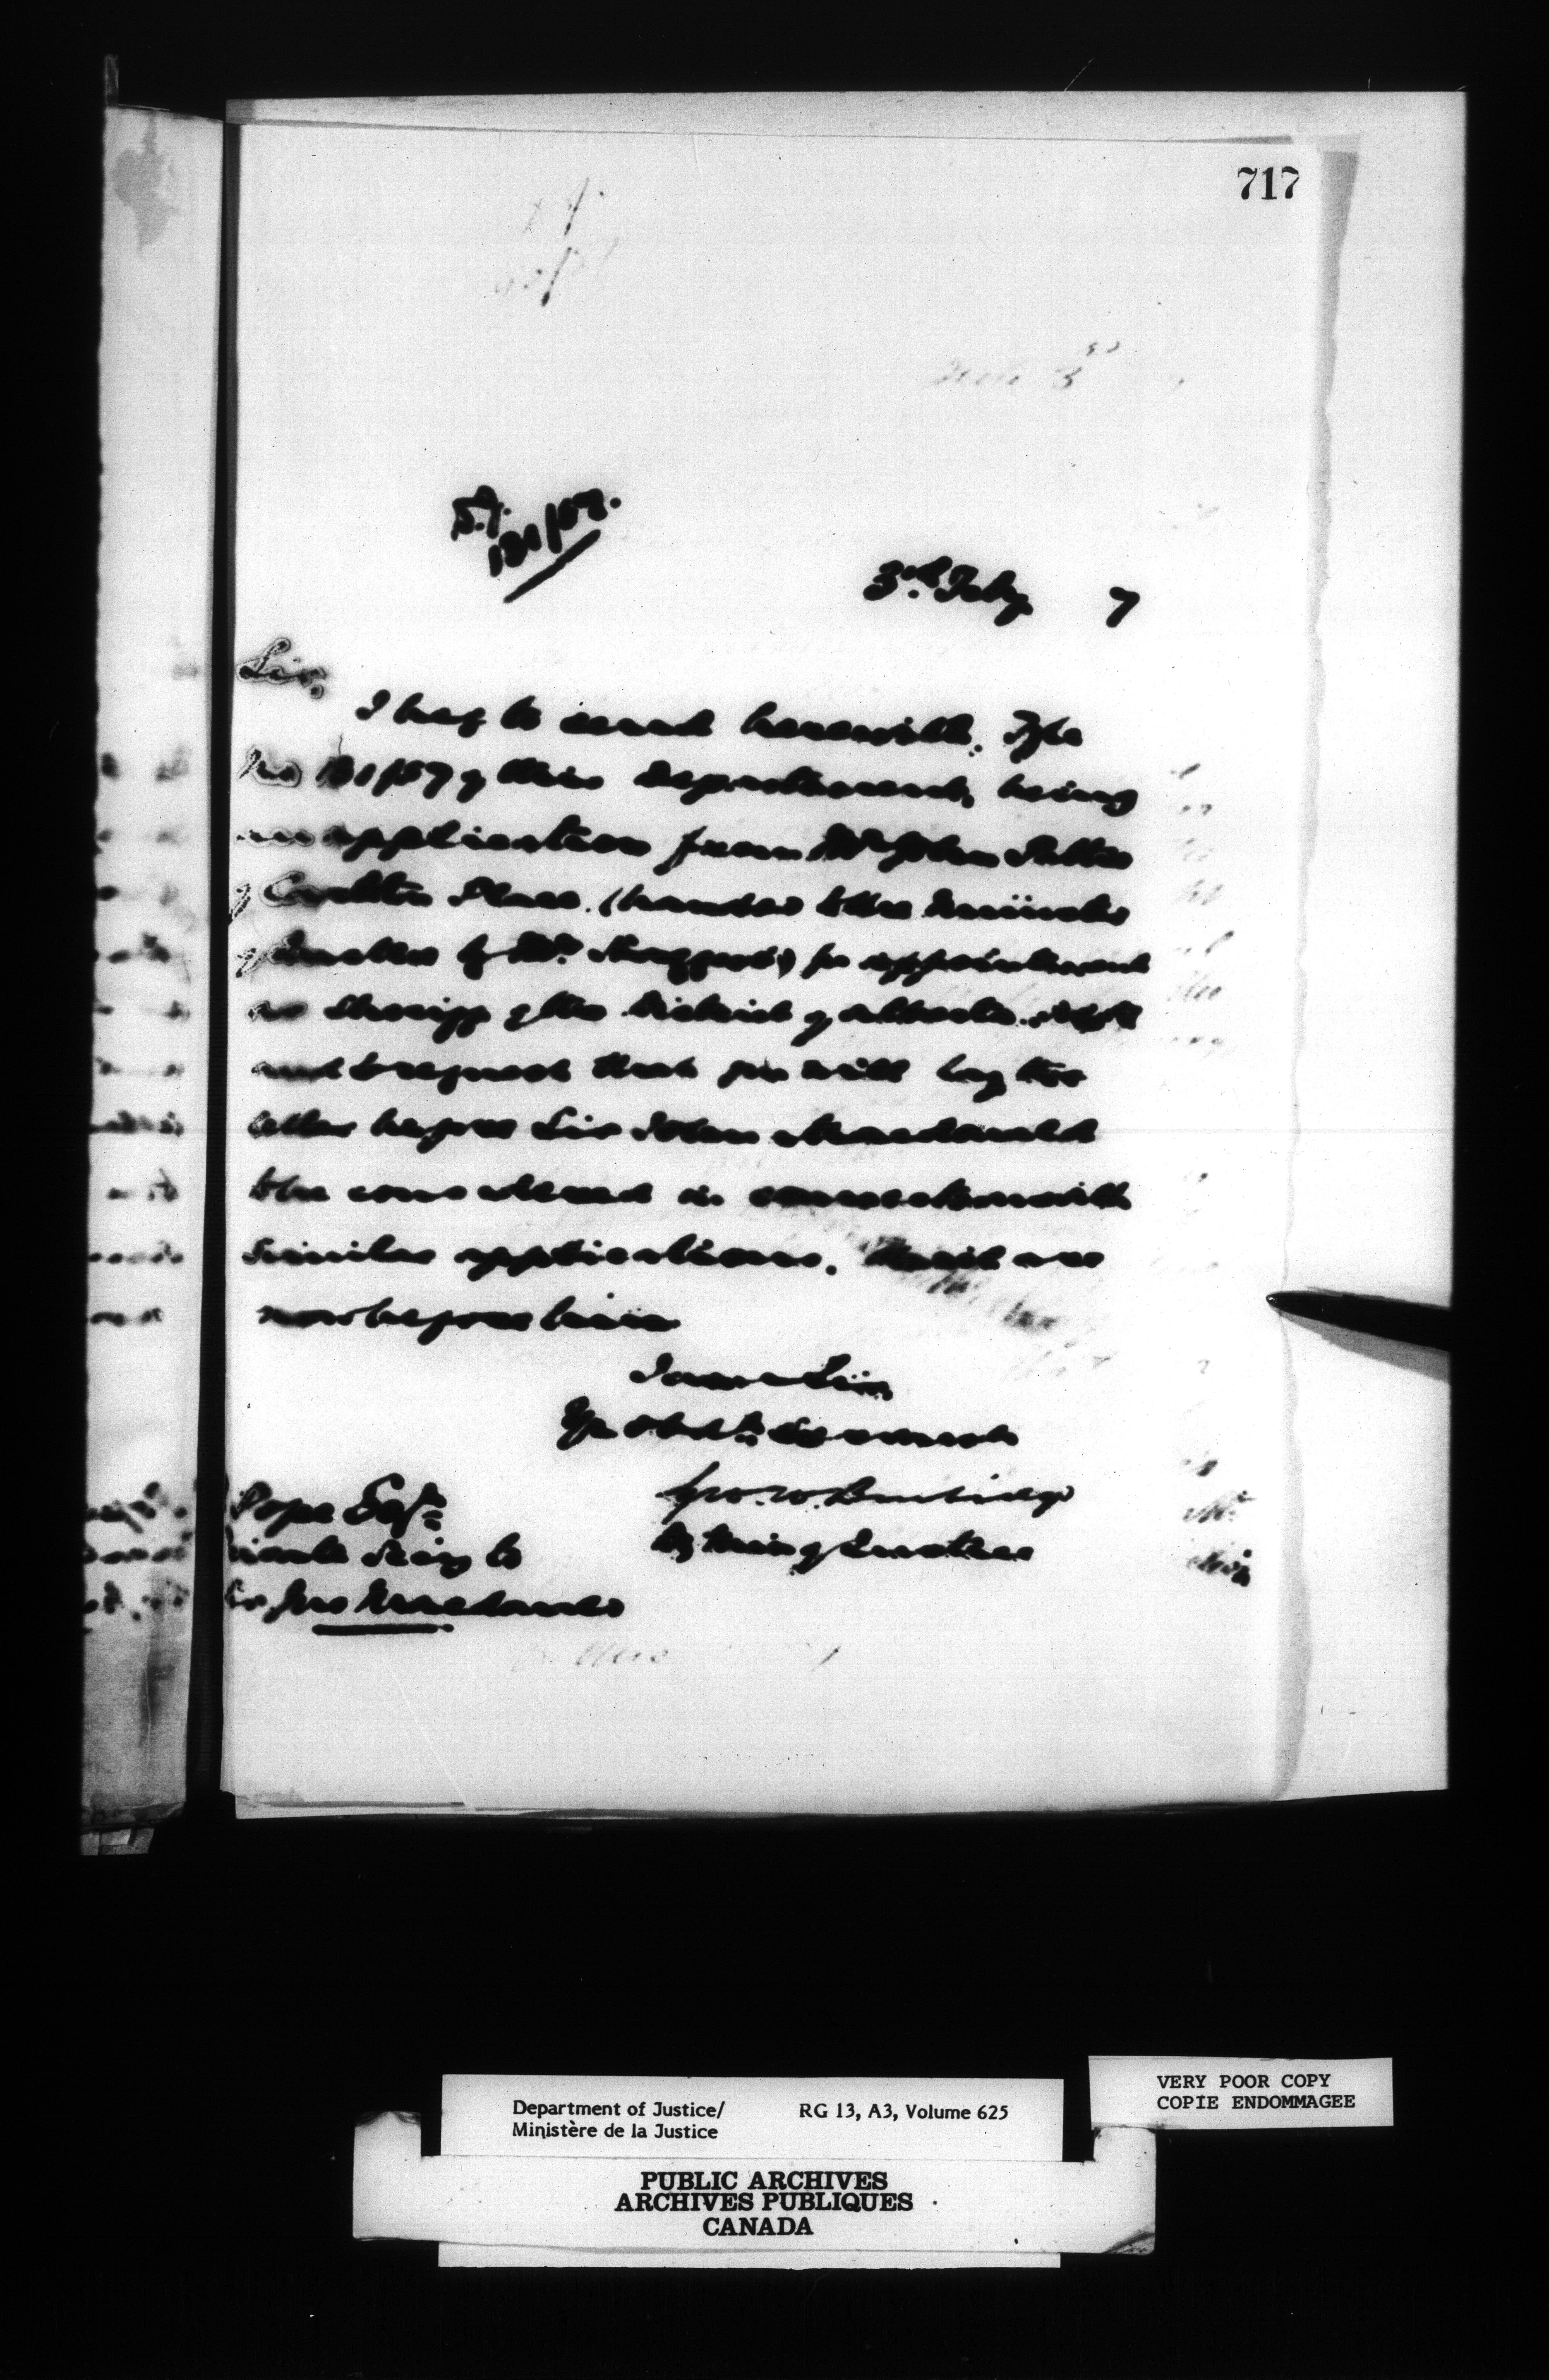 717
131/87.
3rd Feby 7
Sir,
I beg to send herewith, File
No 131/87 of this department, being
an application from Mr John
of Carleton Place. (handed to the Minister
of Justice by Mr. Haggart) for appointment
as Sheriff of the District of Alberta.
and to request that you will lay the
letter before Sir John Macdonald
to be considered in connection with
similar applications. that are
now before him
I am Sir,
Yr Obdt. Servant
Geo. W. Burbidge
D. Min. of Justice
Pope Esqr
Private Secy to
Sir Jno Macdonald
Department of Justice/ RG 13, A3, Volume 625
Ministère de la Justice
VERY POOR COPY
COPIE ENDOMMAGEE
PUBLIC ARCHIVES
ARCHIVES PUBLIQUES
CANADA